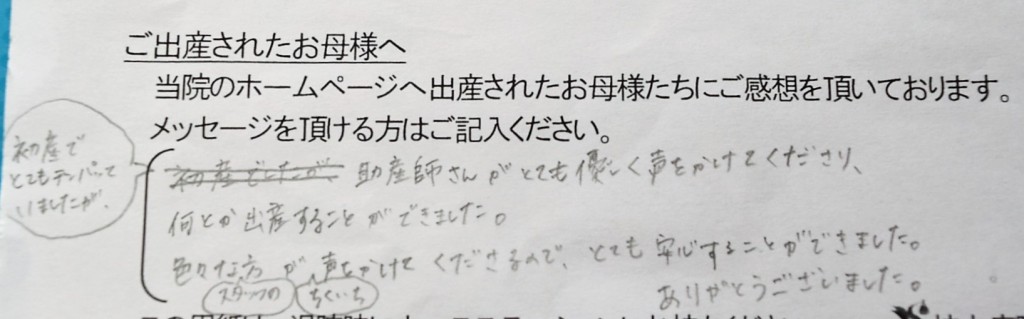 ご出産されたお母様へ
当院のホームページへ出産されたお母様たちにご感想を頂いております。
メッセージを頂ける方はご記入ください。
初産で
とてもテンパって
いましたが、
初産でしたが、助産師さんがとても優しく声をかけてくださり、
何とか出産することができました。
色々な方が声をかけてくださるので、とても安心することができました。
スタッフの
ちくいち
ありがとうございました。